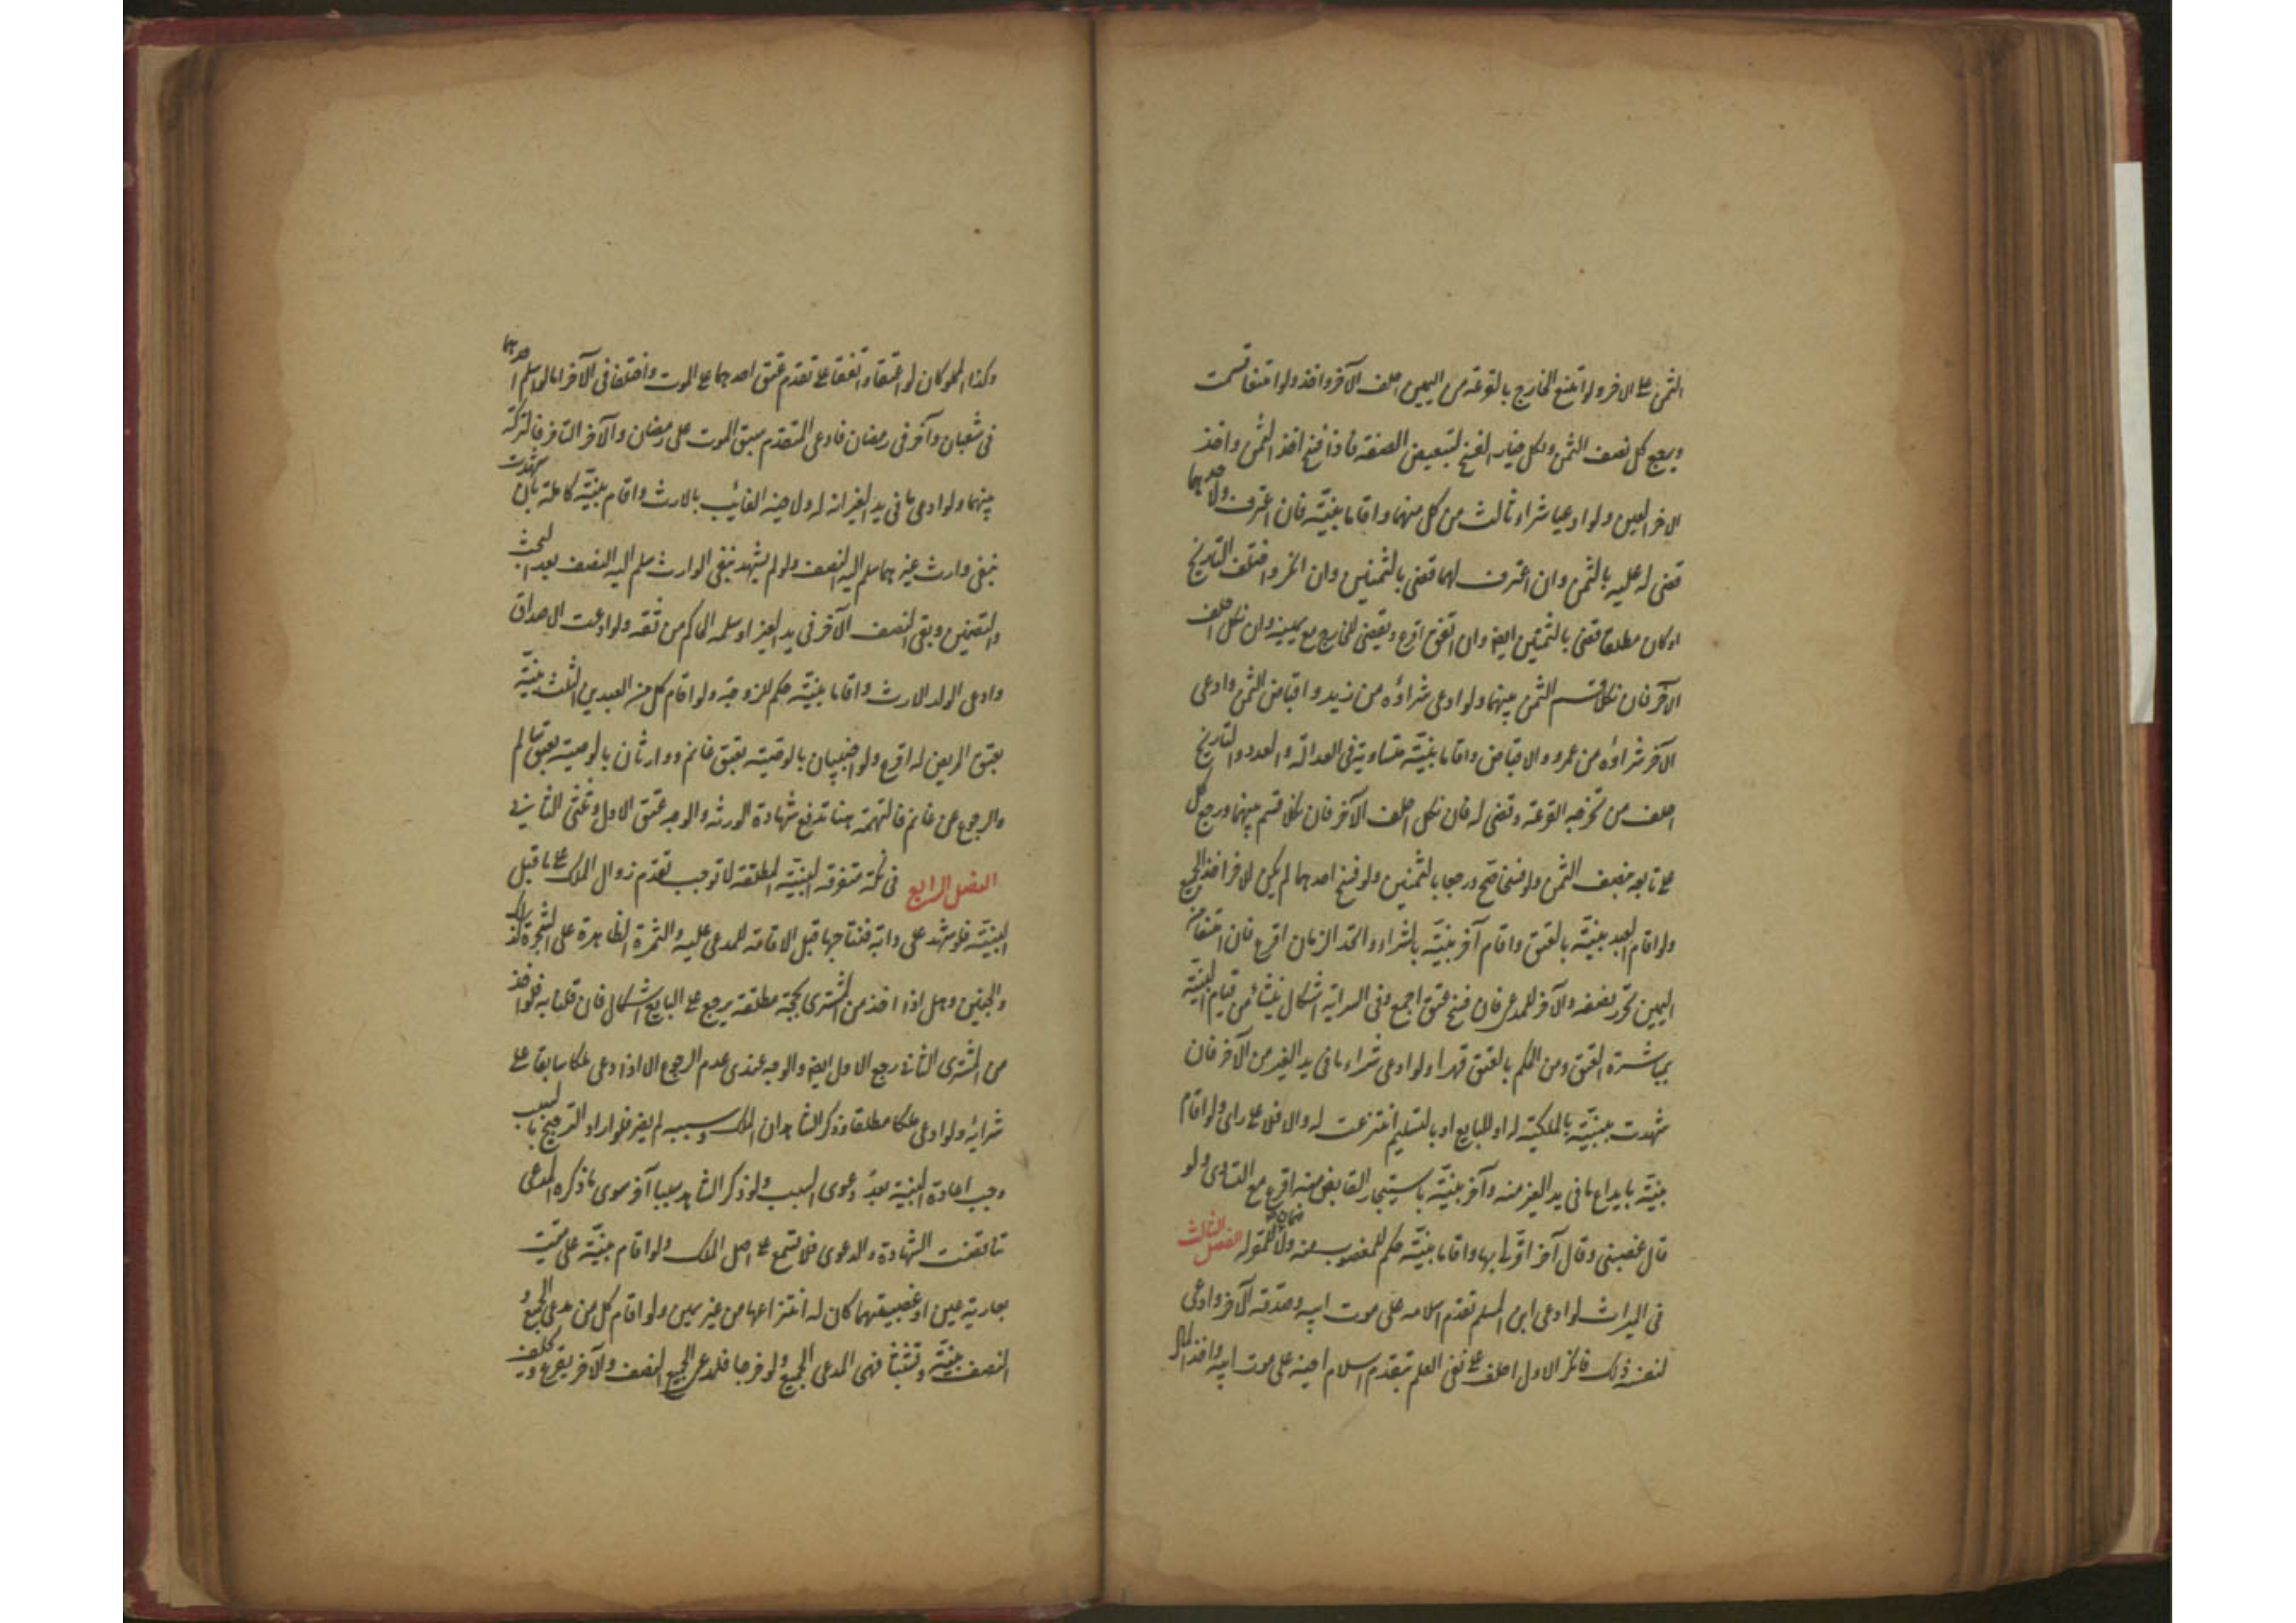 الثمن على الاخر ولو امتنع الخارج بالقرعة من اليمين احلف الآخر واخذ ولو امتنعا قسمت
ويرجع كل نصف الثمن ولكل خيار الفسخ لتبعيض الصفقة فاذا فسخ اخذ الثمن واخذ
الاخر العين ولو ادعيا شراء ثالث من كل منهما واقاما بينة فان اعترف لاحدهما
قضى له عليه بالثمن وان اعترف لهما قضى بالثمنين وان انكر واختلف التاريخ
او كان مطلقا قضى بالثمنين ايضا وان اتفق اقرع ويقضى للخارج مع يمينه وان نكل احلف
الآخر فان نكلا قسم الثمن بينهما ولو ادعى شراؤه من زيد واقباض الثمن وادعى
الآخر شراؤه من عمرو والاقباض واقاما بينة متساوية فى العدالة والعدد والتاريخ
احلف من تخرجه القرعة وقضى له فان نكل احلف الآخر فان نكلا قسم بينهما ورجع كل
على بايعه بنصف الثمن ولو فسخا صح ورجعا بالثمنين ولو فسخ احدهما لم يكن للاخر اخذ الجميع
ولو اقام العبد بينة بالعتق واقام آخر بينة بالشراء واتحد الزمان اقرع فان امتنعا من
اليمين تحرر نصفه والآخر للمدعى فان فسخ عتق اجمع وفى السراية اشكال ينشأ من قيام البينة
بمباشرة العتق ومن الحكم بالعتق قهرا ولو ادعى شراء ما فى يد الغير من الآخر فان
شهدت بينة بالملكية له او للبايع او بالتسليم انتزعت له والا فلا على راى ولو اقام
بينة بايداع ما فى يد الغير منه وآخر بينة باستيجار القابض منه اقرع مع التساوى ولو
قال غصبنى وقال آخر اقر لى بها واقاما بينة حكم للمغصوب منه ولا ضمان للمقر له الفصل الثالث
فى الميراث لو ادعى ابن المسلم تقدم اسلامه على موت ابيه وصدقه الآخر وادعى
لنفسه ذلك فانكر الاول احلف على نفى العلم بتقدم اسلام اخيه على موت ابيه واخذ المال
وكذا المملوكان لو اعتقا واتفقا على تقدم عتق احدهما على الموت واختلفا فى الآخر اما لو اسلم احدهما
فى شعبان وآخر فى رمضان فادعى المتقدم سبق الموت على رمضان والآخر التاخر فالتركة
بينهما ولو ادعى ما فى يد الغير انه له ولاخيه الغايب بالارث واقام بينة كاملة بان شهدت
بنفى وارث غيرهما سلم اليه النصف ولو لم يشهد بنفى الوارث سلم اليه النصف بعد البحث
والتضمين وبقى النصف الآخر فى يد الغير او سلمه الحاكم من ثقة ولو ادعت الاصداق
وادعى الولد الارث واقاما بينة حكم للزوجة ولو اقام كل من العبدين الثلث بينة
بعتق المريض له اقرع ولو اجنبيان بالوصية بعتق غانم ووارثان بالوصية بعتق سالم
والرجوع عن غانم فالتهمة هنا تدفع شهادة الورثة والوجه عتق الاول وثلثى الثانى
الفصل الرابع فى نكت متفرقة البينة المطلقة لا توجب تقدم زوال الملك على ما قبل
البينة فلو شهد على دابة فنتاجها قبل الاقامة للمدعى عليه والثمرة الظاهرة على الشجرة كذلك
والجنين وهل اذا اخذ من المشترى بحجة مطلقة يرجع على البايع اشكال فان قلنا به فلو اخذ
من المشترى الثانى رجع الاول ايضا والوجه عندى عدم الرجوع الا اذا ادعى ملكا سابقا على
شرائه ولو ادعى ملكا مطلقا وذكر الشاهدان الملك وسببه لم يضر فلو اراد الترجيح بالسبب
وجب اعادة البينة بعد دعوى السبب ولو ذكر الشاهد سببا آخر سوى ما ذكره المدعى
تناقضت الشهادة والدعوى فلا تسمع على اصل الملك ولو اقام بينة على ميت
بعارية عين او غصبيتهما كان له انتزاعها من غير يمين ولو اقام كل من مدعى الجميع و
النصف بينة وتشبثا فهى لمدعى الجميع ولو خرجا فلمدعى الجميع النصف والآخر يقرع ويحلف